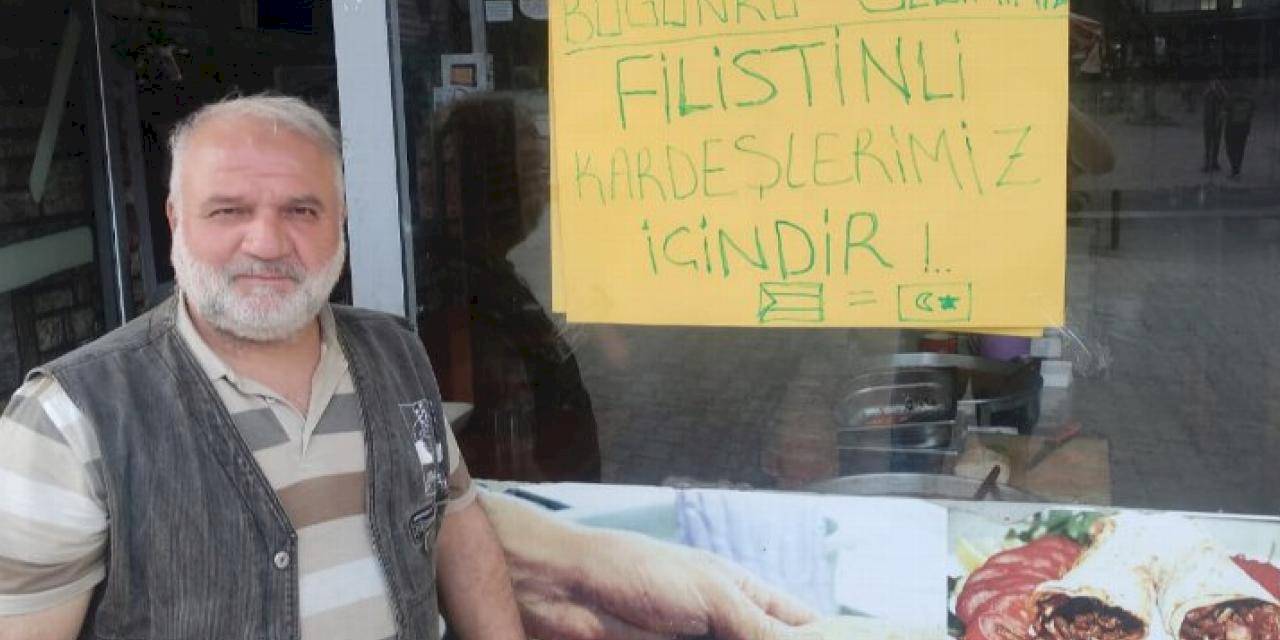 BUGÜNKÜ GELİRİMİZ
FİLİSTİNLİ
KARDEŞLERİMİZ
İÇİNDİR !..
=